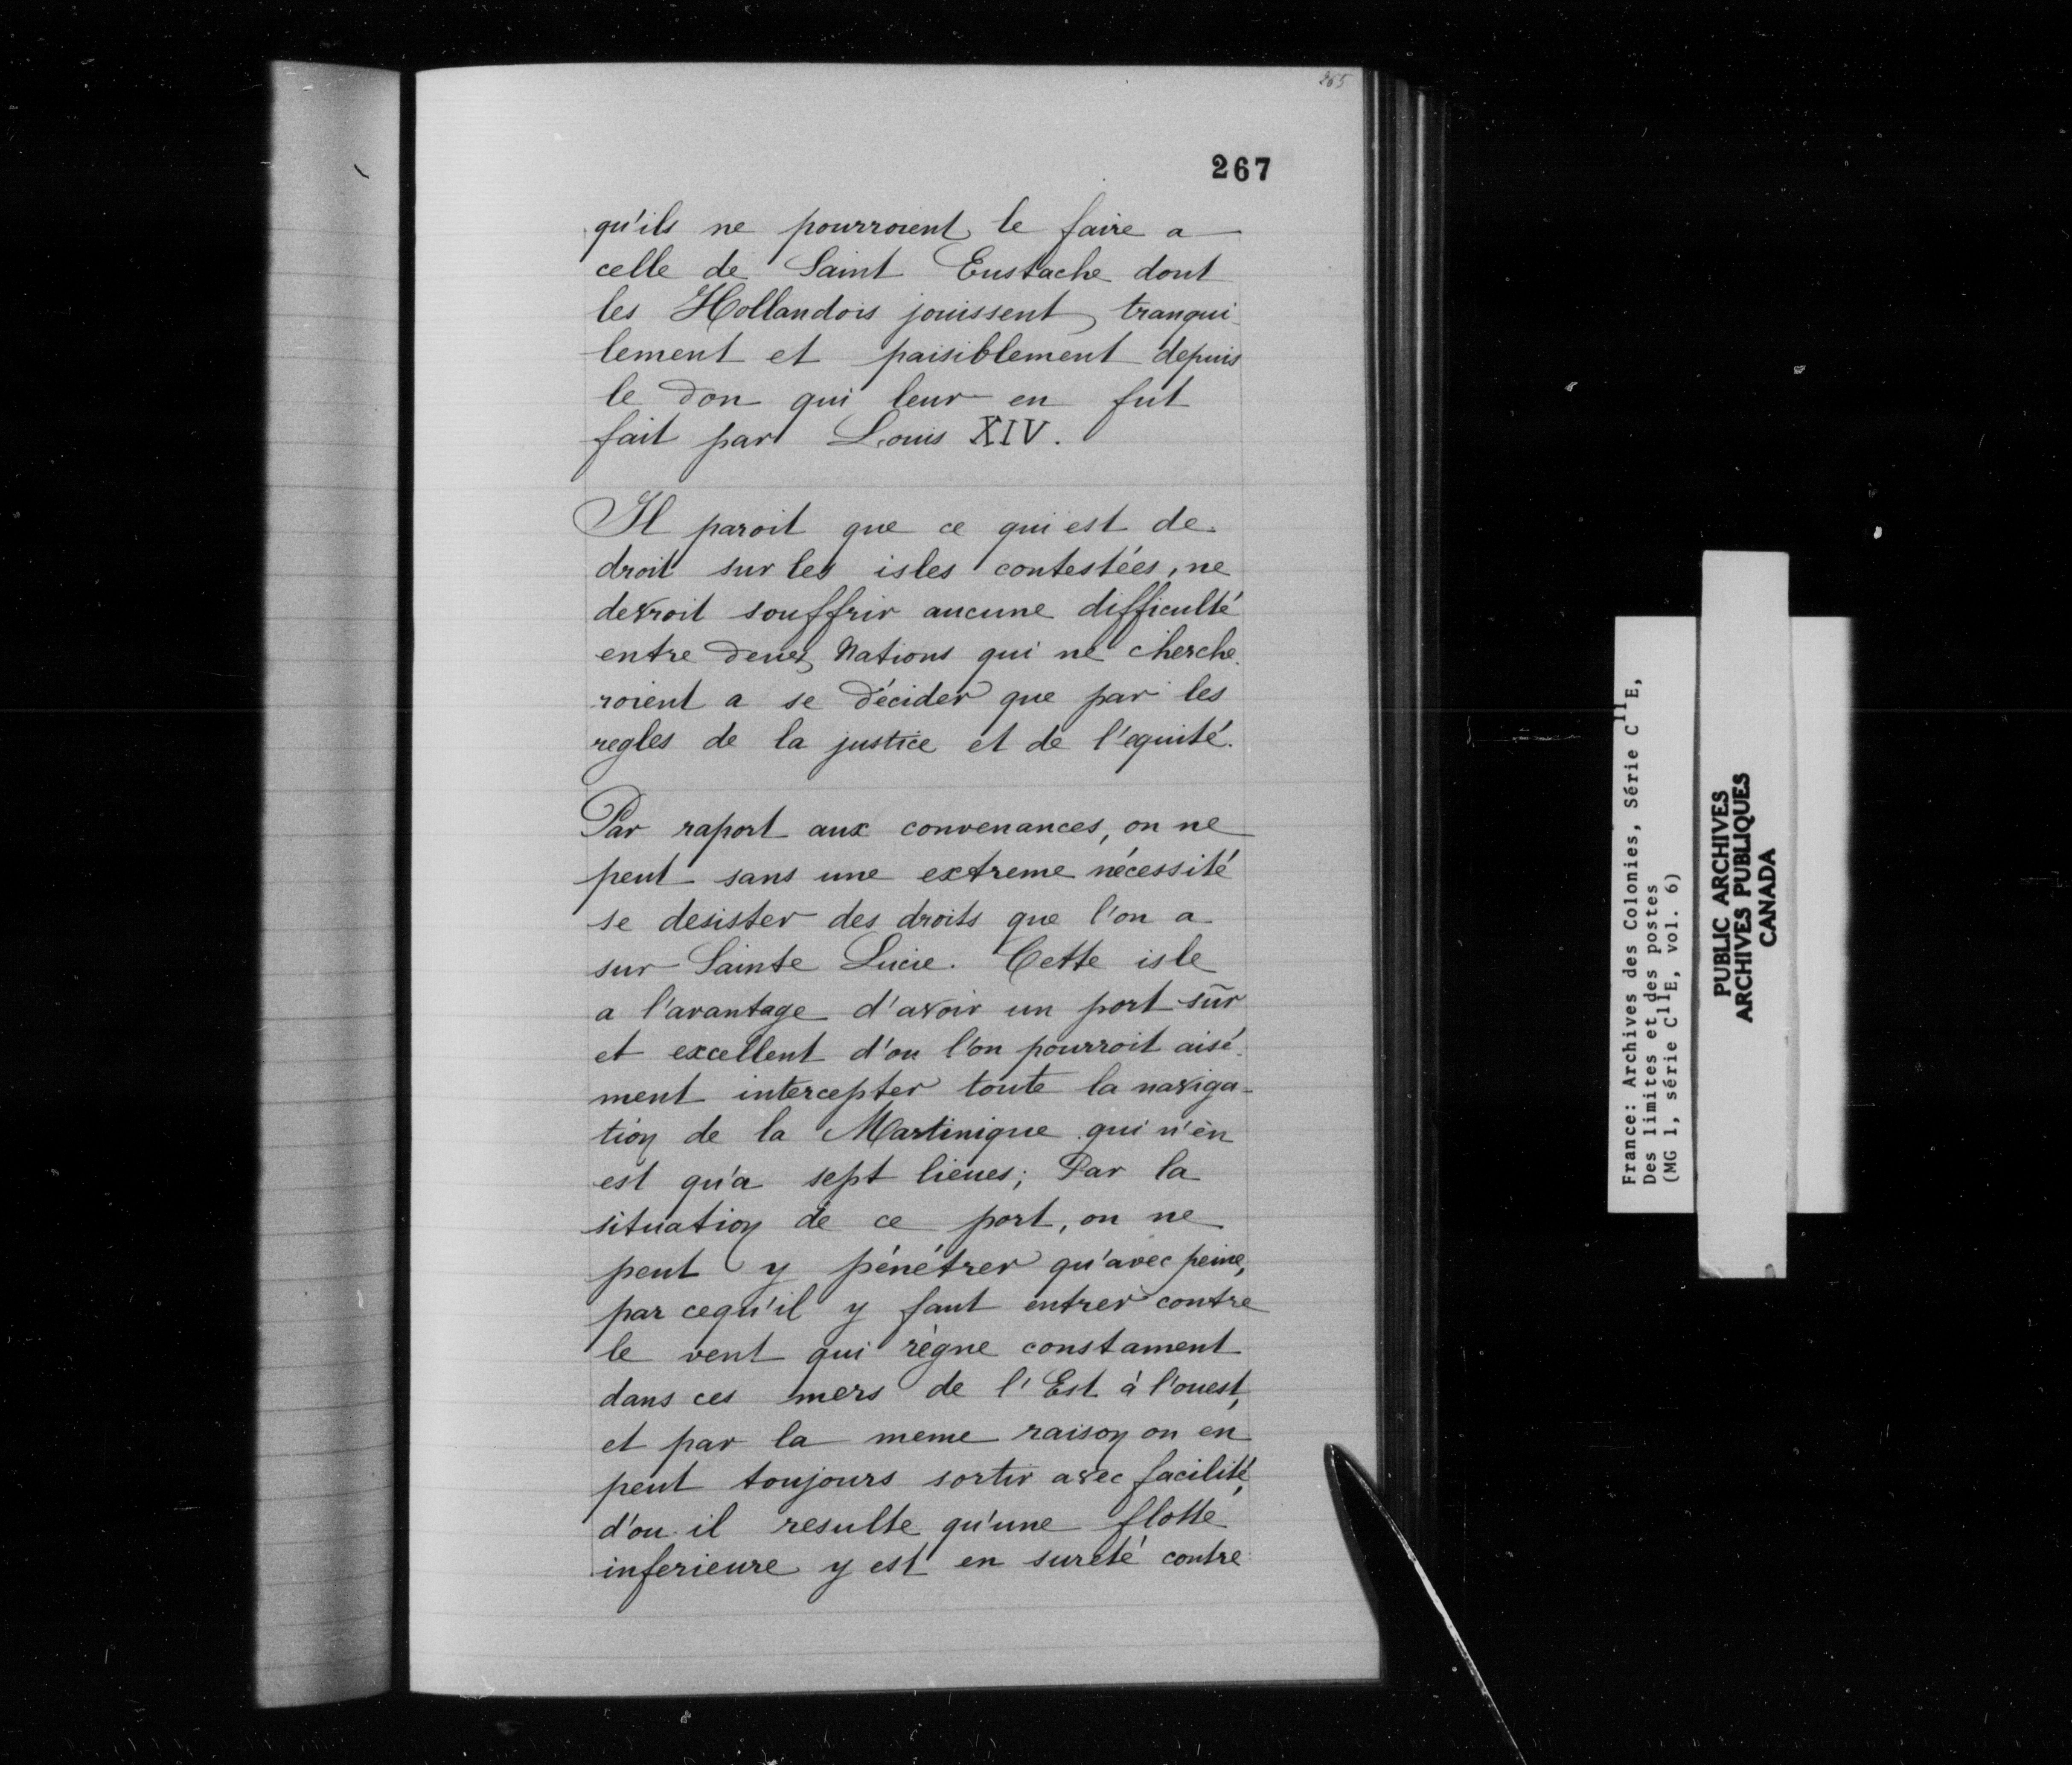 265
267
qu'ils ne pourroient le faire a
celle de Saint Eustache dont
les Hollandois jouissent tranqui-
lement et paisiblement depuis
le don qui leur en fut
fait par Louis XIV.
Il paroit que ce qui est de
droit sur les isles contestées, ne
devroit souffrir aucune difficulté
entre deux Nations qui ne cherche-
roient a se décider que par les
regles de la justice et de l'equité.
Par raport aux convenances, on ne
peut sans une extreme nécessité
se desister des droits que l'on a
sur Sainte Lucie. Cette isle
a l'avantage d'avoir un port sûr
et excellent d'ou l'on pourroit aisé-
ment intercepter toute la naviga-
tion de la Martinique qui n'en
est qu'a sept lieues; Par la
situation de ce port, on ne
peut y pénétrer qu'avec peine,
par cequ'il y faut entrer contre
le vent qui règne constament
dans ces mers de l'Est à l'ouest,
et par la meme raison on en
peut toujours sortir avec facilité,
d'ou il resulte qu'une flotte
inferieure y est en sureté contre
France: Archives des Colonies, Série C11E,
Des limites et des postes
(MG 1, série C11E, vol. 6)
PUBLIC ARCHIVES
ARCHIVES PUBLIQUES
CANADA